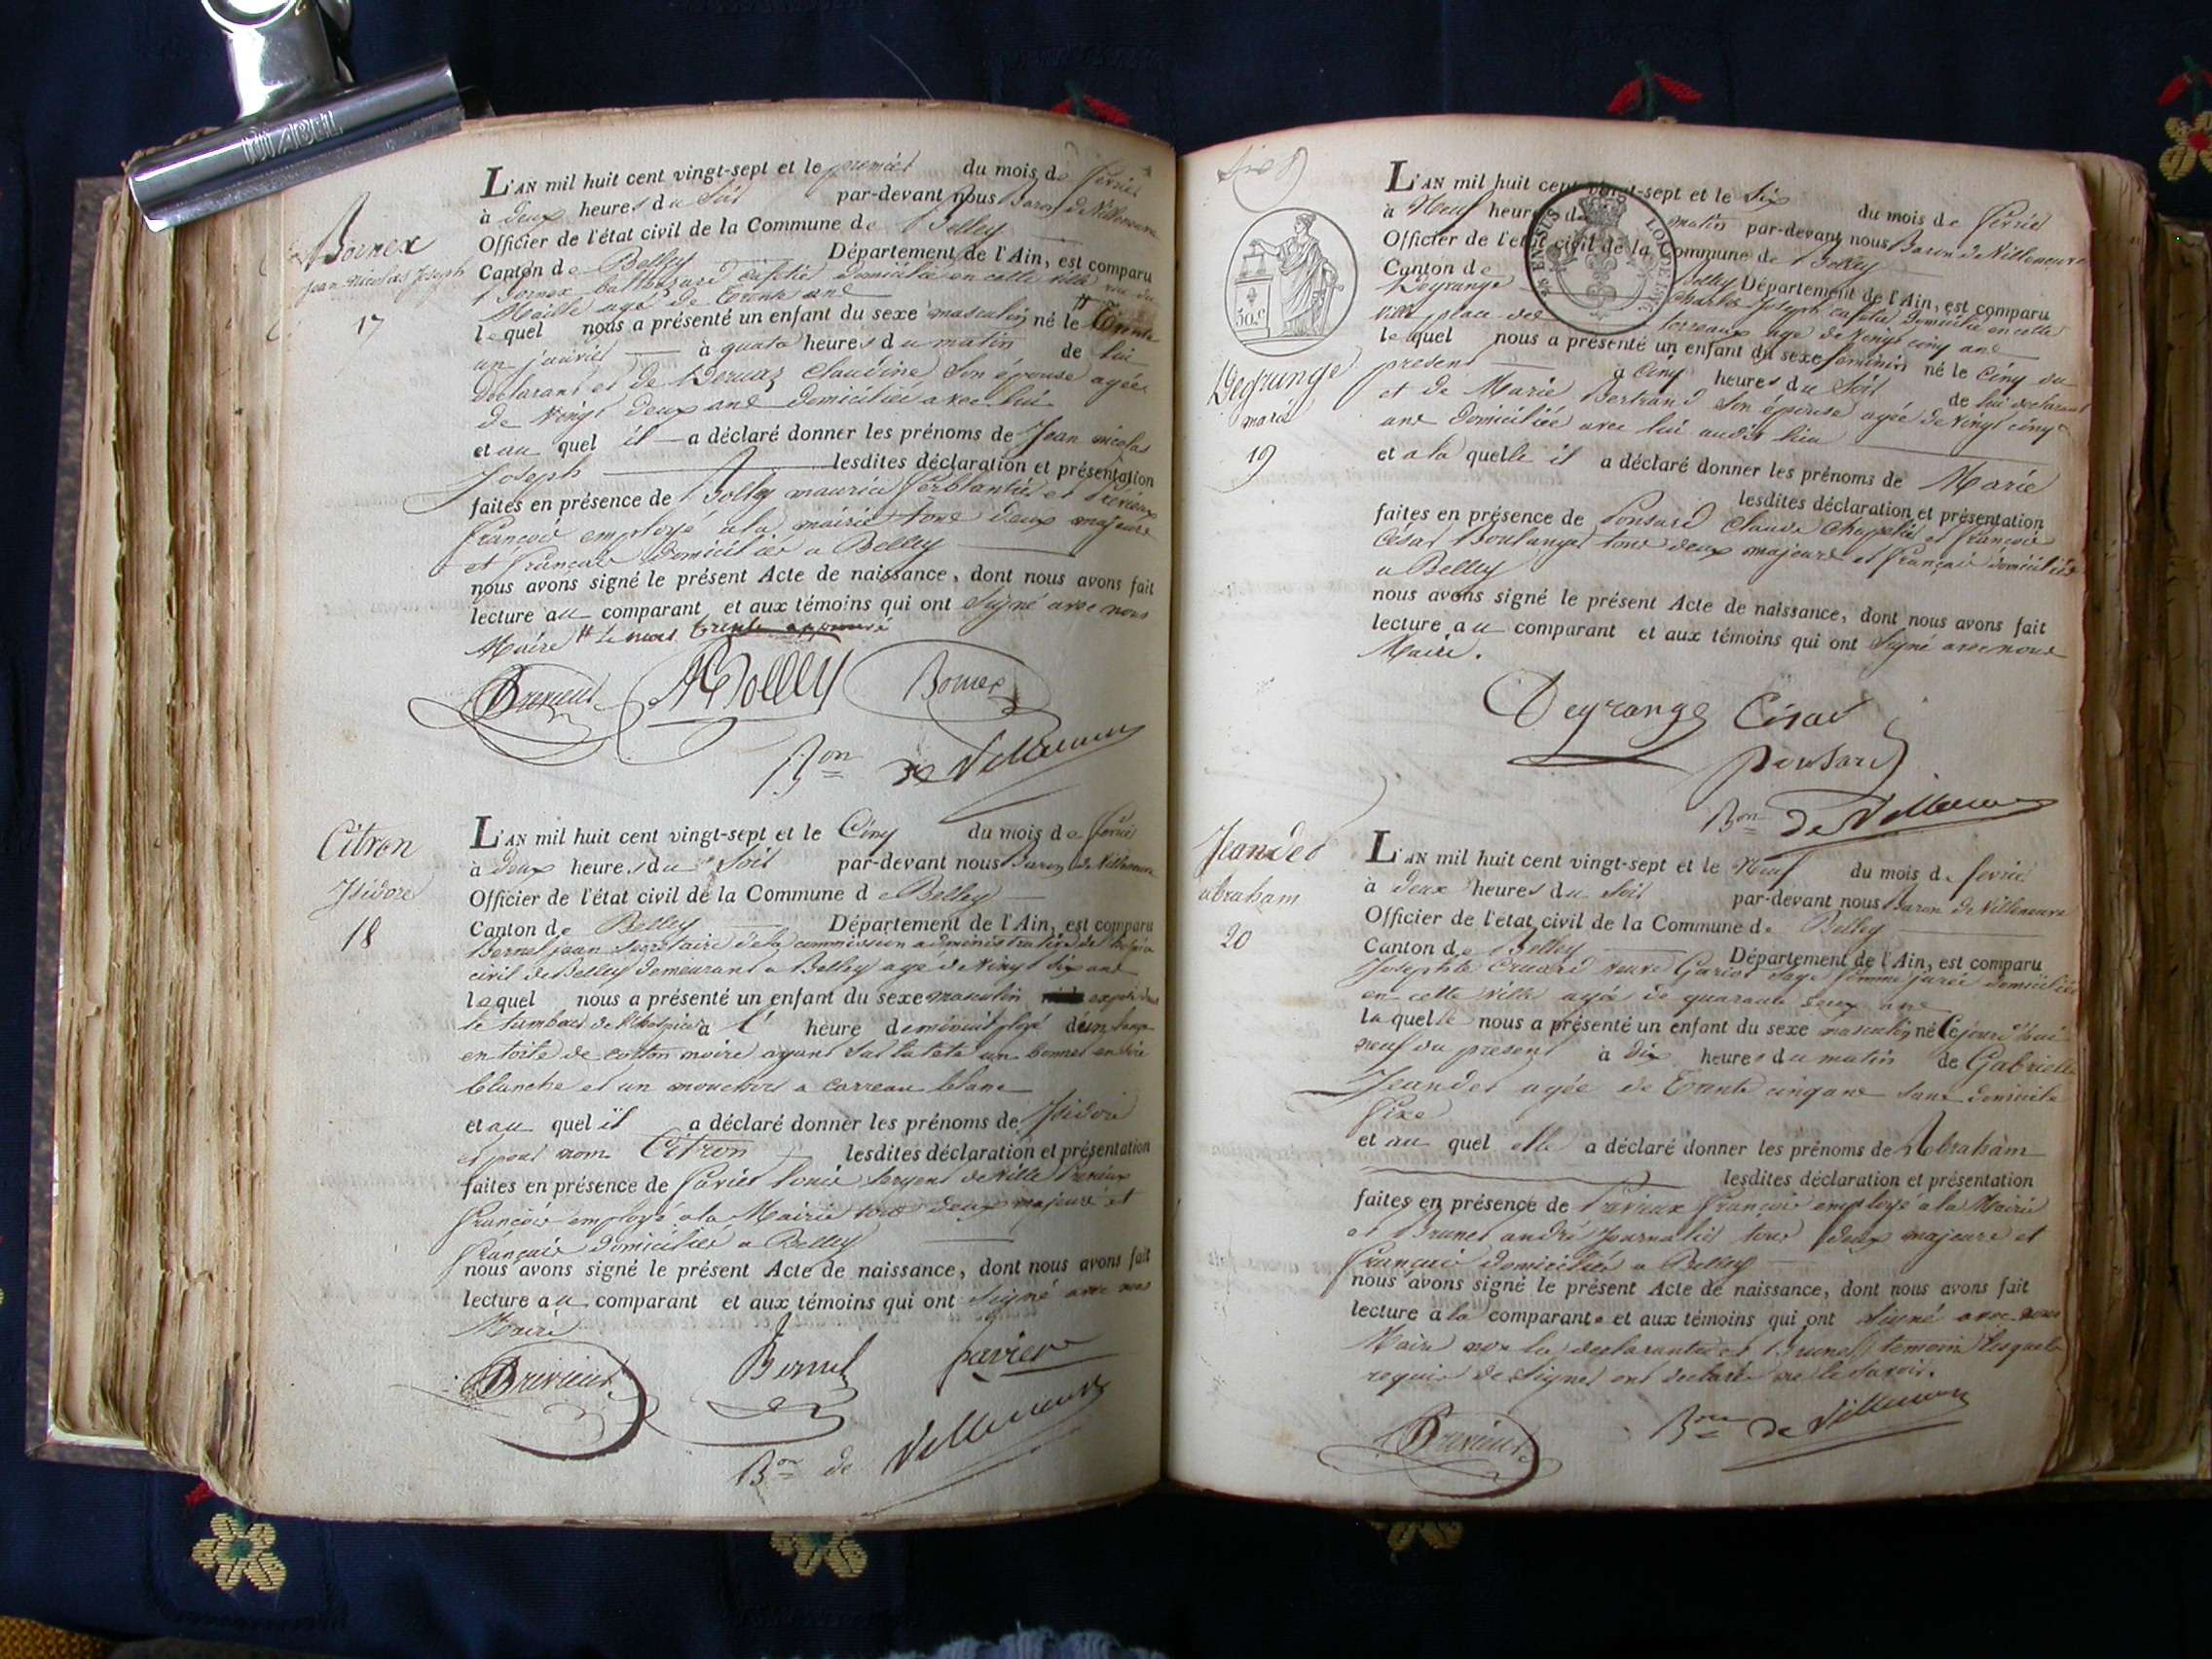 DIABEL
Bornex
Jean nicolas Joseph
17
L'AN mil huit cent vingt-sept et le premier du mois de fevrier
à deux heures du Soir par-devant nous Baron de Villeneuve
Officier de l'état civil de la Commune de Belley
Canton de Belley Département de l'Ain, est comparu
Bornex balthazard cafetier domicilié en cette ville rue du
Maille agé de trente ans
lequel nous a présenté un enfant du sexe masculin né le # Trente
un janvier à quatre heures du matin de lui
declarant et de claudine Son épouse agée
de Vingt deux ans domiciliée avec lui
et au quel il a déclaré donner les prénoms de Jean nicolas
Joseph lesdites déclaration et présentation
faites en présence de Jolly maurice ferblantier et Previeux
françois employé a la mairie tous deux majeurs
et français domiciliés a Belley
nous avons signé le présent Acte de naissance, dont nous avons fait
lecture au comparant et aux témoins qui ont Signé avec nous
Maire # Le mot trente approuvé
Previeux Jolly Bornex
Bon de Villeneuve
Citron
Isidore
18
L'AN mil huit cent vingt-sept et le Cinq du mois de fevrier
à deux heures du Soir par-devant nous Baron de Villeneuve
Officier de l'état civil de la Commune de Belley
Canton de Belley Département de l'Ain, est comparu
Bernel jean Secretaire de la commission administrative de l'hospice
civil de Belley demeurant a Belley agé de Vingt Six ans
lequel nous a présenté un enfant du sexe masculin exposé dans
le tambour de l'hospice à l' heure de minuit ployé d'un lange
en toile de cotton noire ayant Sur la tete un bonnet en
blanche et un mouchoir a carreau blanc
et au quel il a déclaré donner les prénoms de Isidore
et pour nom Citron lesdites déclaration et présentation
faites en présence de Pavier Louis Sergent de Ville Previeux
françois employé a la Mairie tous deux majeurs et
français domiciliés a Belley
nous avons signé le présent Acte de naissance, dont nous avons fait
lecture au comparant et aux témoins qui ont Signé avec nous
Maire
Previeux Bernel pavier
Bon de Villeneuve
50 c
Degrange
marie
19
L'AN mil huit cent vingt-sept et le Six du mois de fevrier
à Neuf heures du matin par-devant nous Baron de Villeneuve
Officier de l'état civil de la Commune de Belley
Canton de Belley Département de l'Ain, est comparu
Degrange Charles Joseph cafetier domicilié en cette
ville place des terreaux agé de Vingt cinq ans
lequel nous a présenté un enfant du sexe feminin né le Cinq du
présent à Cinq heures du Soir de lui declarant
et de Marie Bertrand Son épouse agée de Vingt cinq
ans domiciliée avec lui audit lieu
et a la quelle il a déclaré donner les prénoms de Marie
lesdites déclaration et présentation
faites en présence de Ponsard claude Chapelier et françois
César Boulanger tous deux majeurs et français domiciliés
a Belley
nous avons signé le présent Acte de naissance, dont nous avons fait
lecture au comparant et aux témoins qui ont Signé avec nous
Maire.
Degrange César
ponsard
Bon de Villeneuve
Jeandet
abraham
20
L'AN mil huit cent vingt-sept et le Neuf du mois de fevrier
à deux heures du Soir par-devant nous Baron de Villeneuve
Officier de l'état civil de la Commune de Belley
Canton de Belley Département de l'Ain, est comparu
Josephte veuve Sage femme jurée domiciliée
en cette Ville agée de quarante deux ans
laquelle nous a présenté un enfant du sexe masculin né Cejourd'hui
neuf du présent à dix heures du matin de Gabrielle
Jeandet agée de Trente cinq ans Sans domicile
fixe
et au quel elle a déclaré donner les prénoms de Abraham
lesdites déclaration et présentation
faites en présence de Previeux françois employé a la Mairie
et Brunet andré Journalier tous deux majeurs et
français domiciliés a Belley
nous avons signé le présent Acte de naissance, dont nous avons fait
lecture a la comparante et aux témoins qui ont Signé avec nous
Maire non la declarante et Brunet temoin lesquels
requis de Signer ont declaré ne le Savoir.
Previeux Bon de Villeneuve